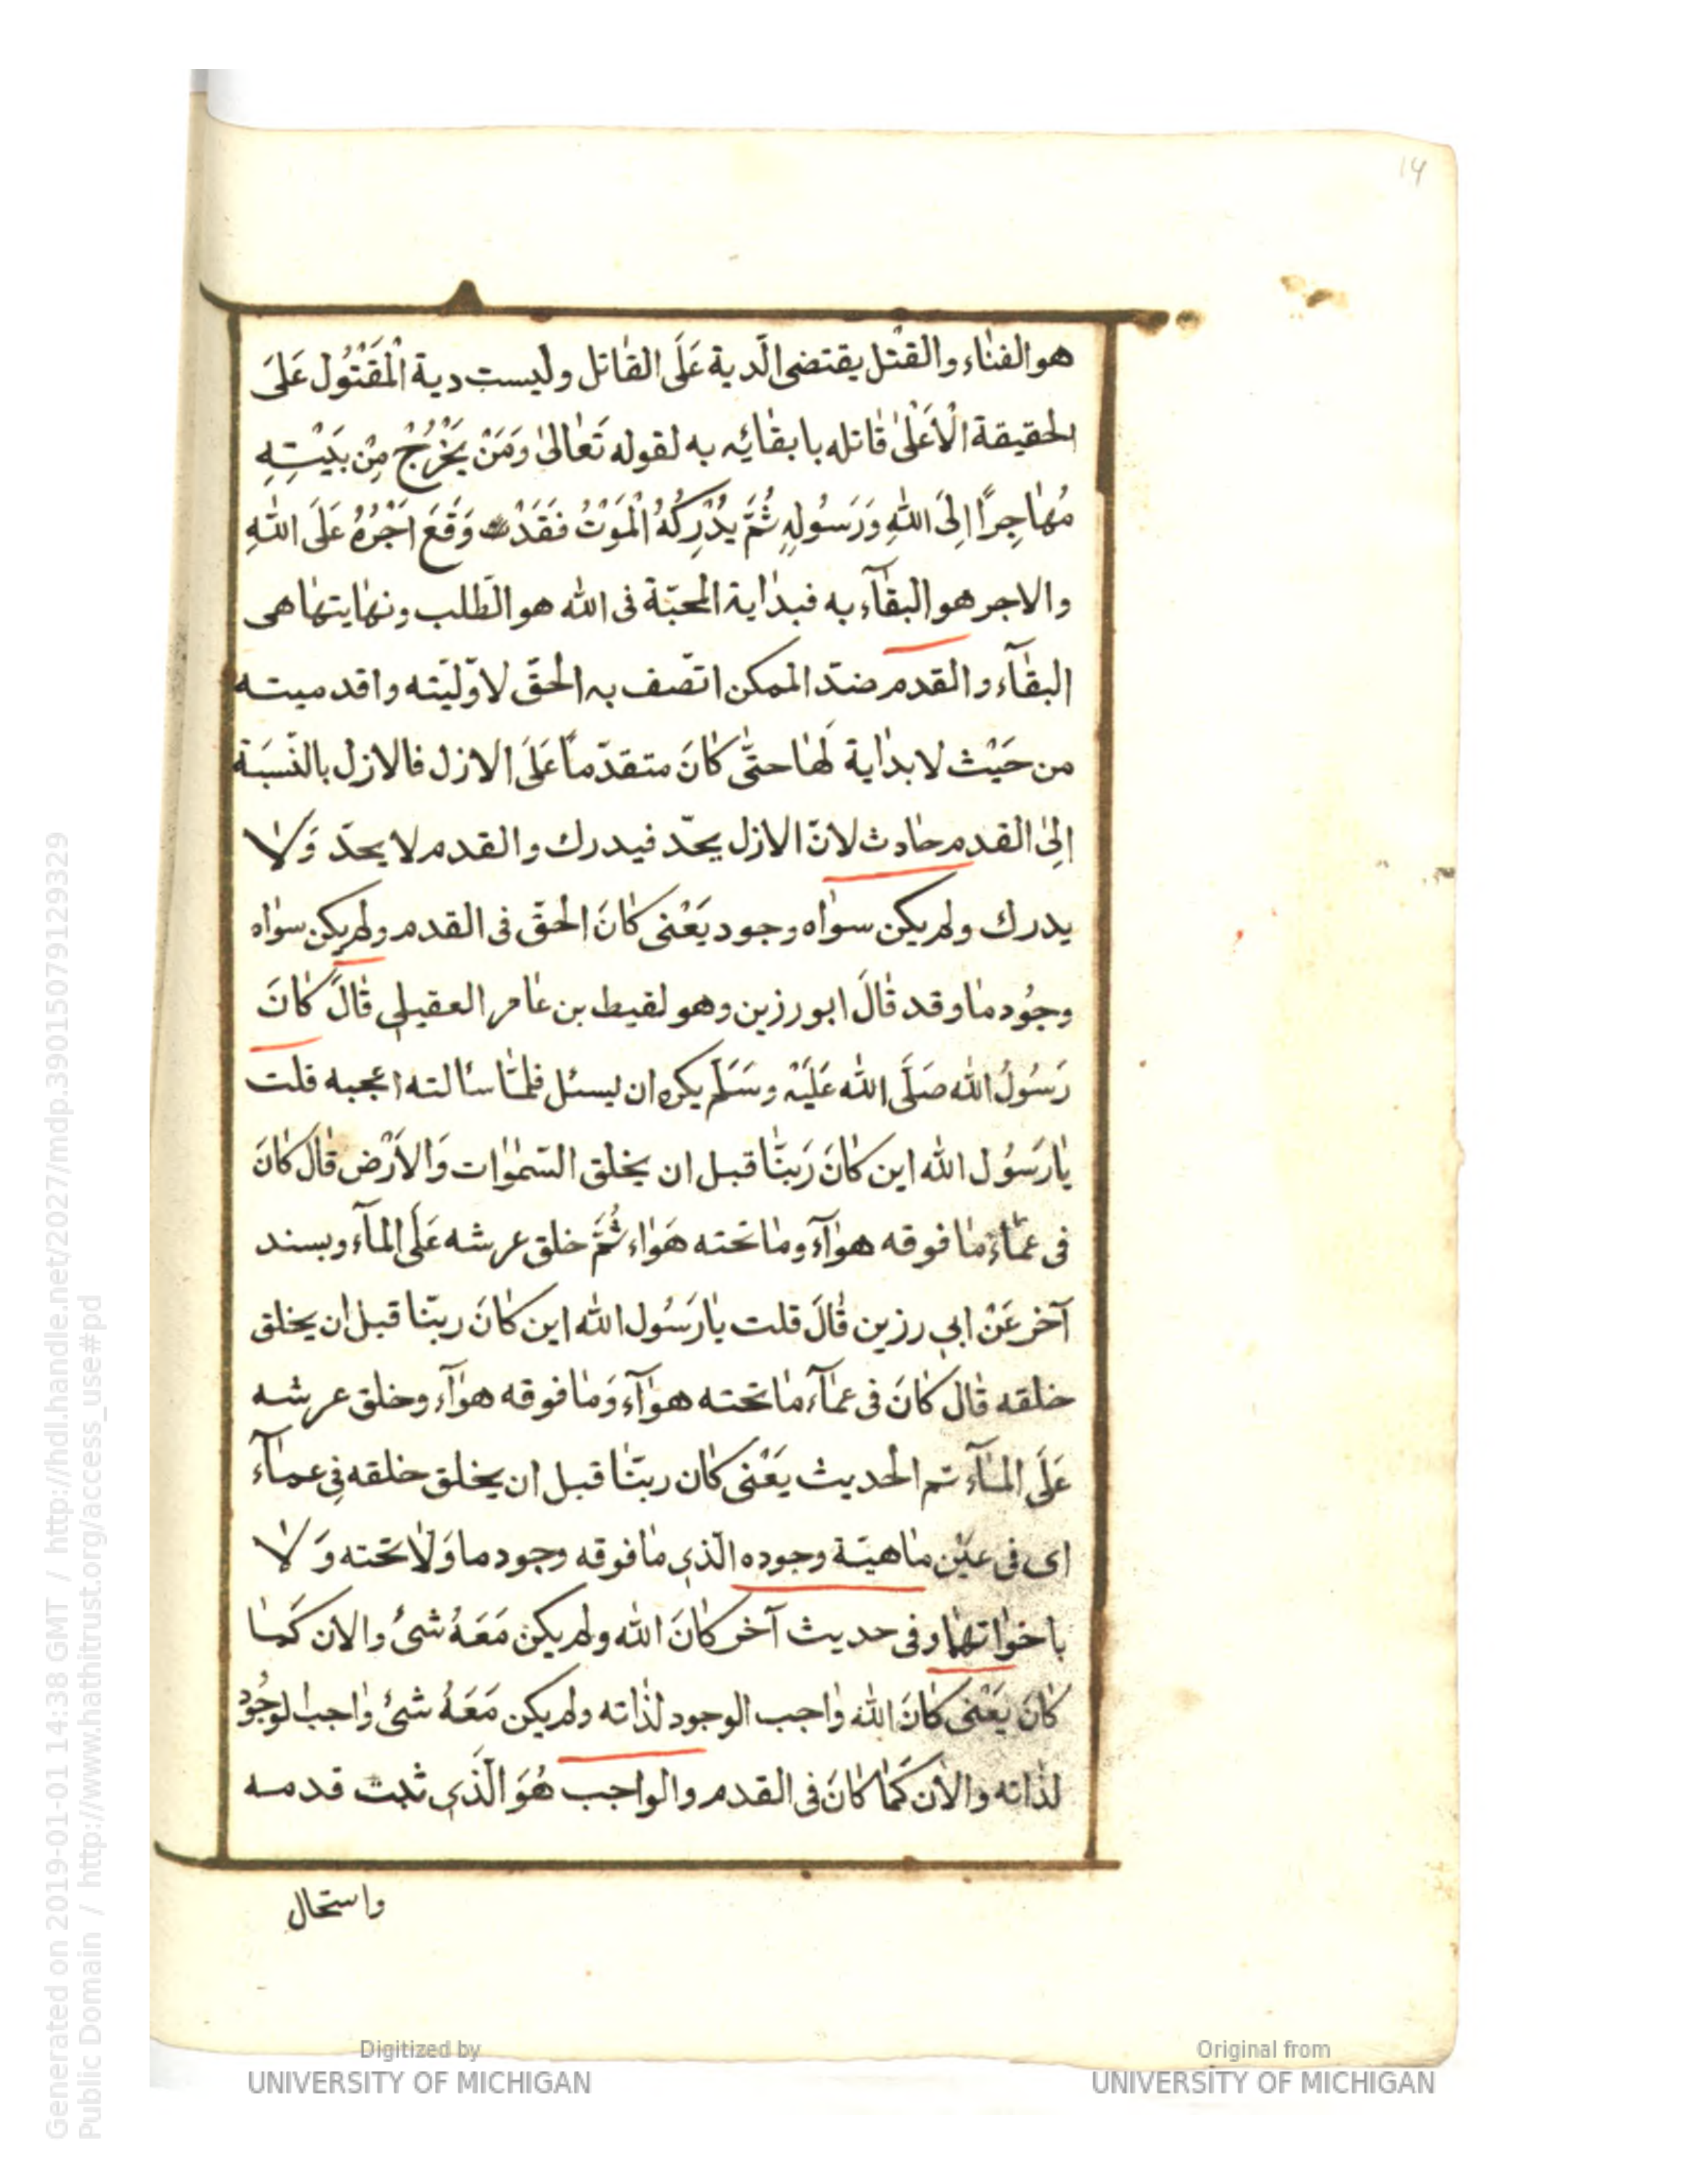 14
هو الفنٰاء والقتْل يقتضى الّدية عَلَى القٰاتل وليست دية الْمَقْتُول عَلىَ
الحقيقة الْاَعْلىٰ قٰاتله بابقٰائه به لقوله تَعٰالىٰ وَمَنْ يَخْرُجْ مِنْ بَيْتِهِ
مُهٰاجِراً اِلىَ اللهِ وَرَسُولِهِ ثُمَّ يُدْرِكْهُ الْمَوْتُ فَقَدْ وَقَعَ اَجْرُهُ عَلَى اللهِ
والاجر هو البقٰآء به فبدٰاية المحبّة فى الله هو الطّلب ونهٰايتهٰا هى
البقٰآء والقدم ضدّ الممكن اتّصف به الحقّ لاوّليّته واقدميته
من حَيْث لا بدٰاية لَهٰا حتّٰى كٰانَ متقدّماً عَلَى الازل فالازل بالنّسبَة
اِلىٰ القدم حٰادث لانّ الازل يحدّ فيدرك والقدم لا يحدّ وَلٰا
يدرك ولم يكن سوٰاه وجود يَعْنى كٰانَ الحقّ فى القدم ولم يكن سوٰاه
وجُود مٰا وقد قٰالَ ابو رزين وهو لقيط بن عٰامر العقيلى قٰالَ كٰانَ
رَسُولُ الله صَلَّى الله عَلَيْهِ وسَلَم يكره ان يسئل فلمّٰا سٰالته اعجبه قلت
يٰا رَسُول الله اين كٰانَ رَبّنٰا قبل ان يخلق السّمٰوٰات وَالاَرْض قٰال كٰانَ
فى عمٰاءٍ مٰا فوقه هوٰآء ومٰا تحته هَوٰاء ثُمَّ خلق عرشه عَلَى المٰآء وبسند
آخر عَنْ ابى رزين قٰالَ قلت يٰا رَسُول الله اين كٰانَ ربّنٰا قبل ان يخلق
خلقه قٰال كٰانَ فى عمٰآء مٰا تحته هوٰآء وَمٰا فوقه هوٰآء وخلق عرشه
عَلَى المٰآء تم الحديث يَعْنى كٰان ربّنٰا قبل ان يخلق خلقه فى عمٰآء
اى فى عيْن مٰاهيّة وجوده الّذى مٰا فوقه وجود ما وَلٰا تحته وَلٰا
باخوٰاتهٰا وفى حديث آخر كٰانَ الله ولم يكن مَعَهُ شىُٔ والان كَمٰا
كٰان يَعْنى كٰانَ الله وٰاجب الوجود لذٰاته ولم يكن مَعَهُ شىُٔ وٰاجب الوجُود
لذٰاته والاٰن كَمٰا كٰانَ فى القدم والواجب هُوَ الّذى ثبت قدمه
واستحال
Generated on 2019-01-01 14:38 GMT / http://hdl.handle.net/2027/mdp.39015079129329
Public Domain / http://www.hathitrust.org/access_use#pd
Digitized by
UNIVERSITY OF MICHIGAN
Original from
UNIVERSITY OF MICHIGAN